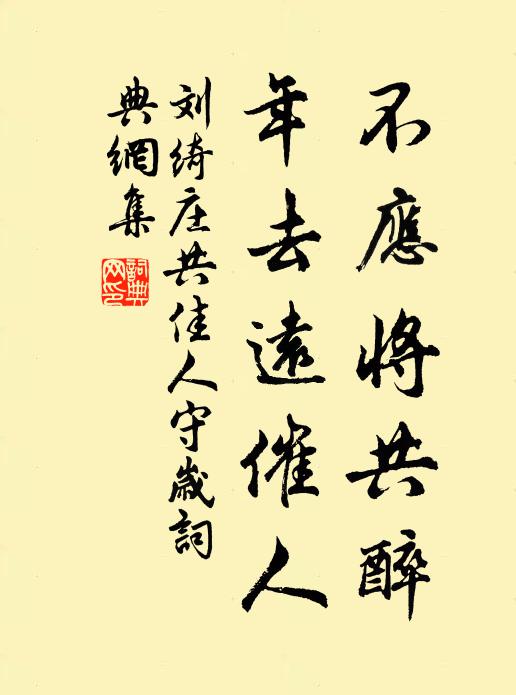 不應將共醉
年去遠催人
刘绮庄共佳人守歲詞
典網集
詞典
网印